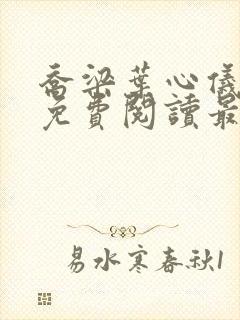 喬梁葉心儀
免費閱讀最
易水寒春秋1